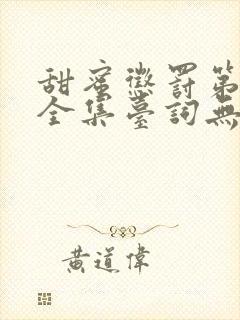 甜蜜懲罰第
全集臺詞無
黃道偉